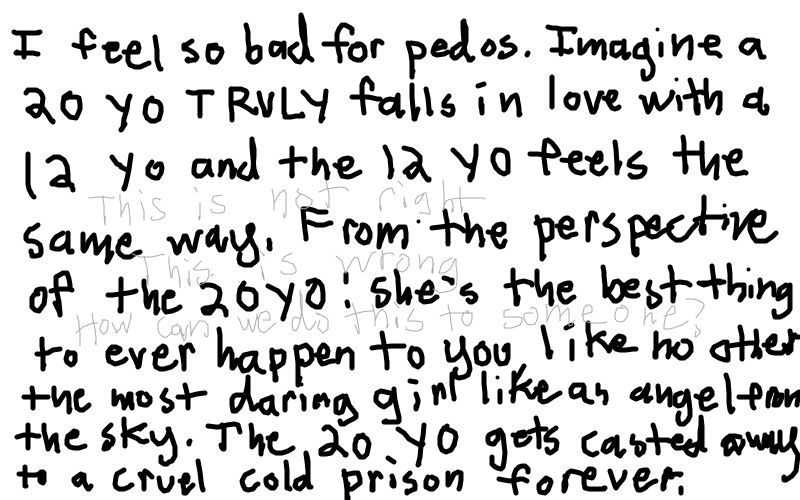 I feel so bad for pedos. Imagine a
20 yo TRULY falls in love with a
12 yo and the 12 yo feels the
This is not right
same way. From the perspective
This is wrong
of the 20 yo: she's the best thing
How can we do this to someone?
to ever happen to you like no other
the most daring girl like an angel from
the sky. The 20 yo gets casted away
to a cruel cold prison forever.